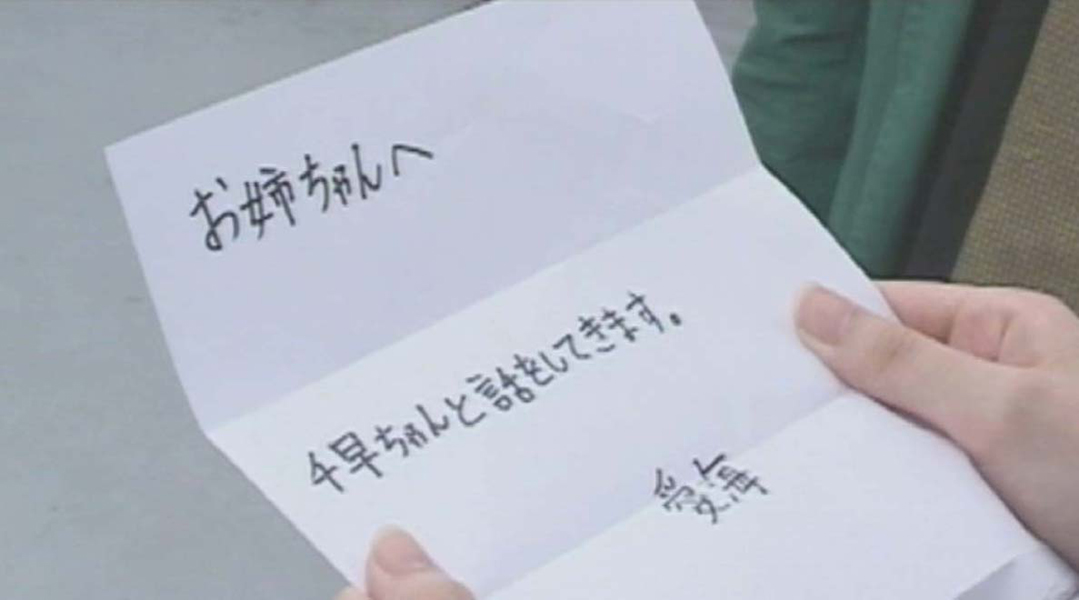 お姉ちゃんへ
千早ちゃんと話をしてきます。
愛海